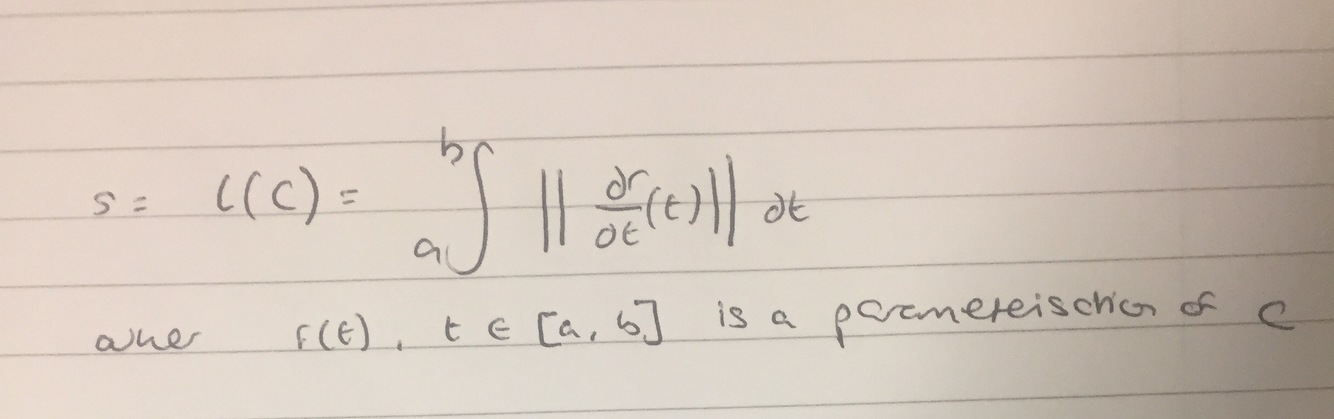 s = l(C) = ∫_a^b ‖ ∂r/∂t (t) ‖ ∂t
wher r(t), t ∈ [a, b] is a parametreisction of C